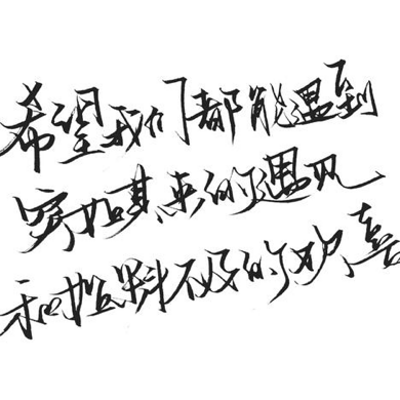 希望我们都能遇到
突如其来的遇见
和始料不及的欢喜